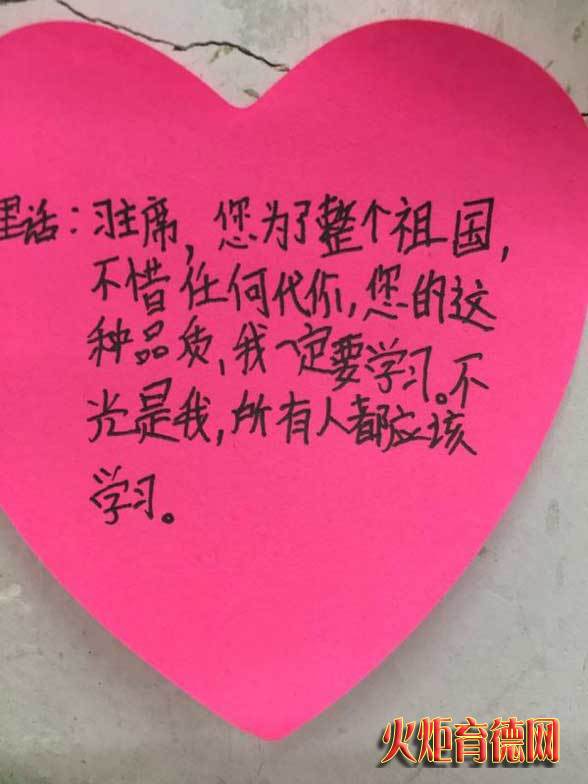 里话：习主席，您为了整个祖国，
不惜任何代价，您的这
种品质，我一定要学习。不
光是我，所有人都应该
学习。
火炬育德网